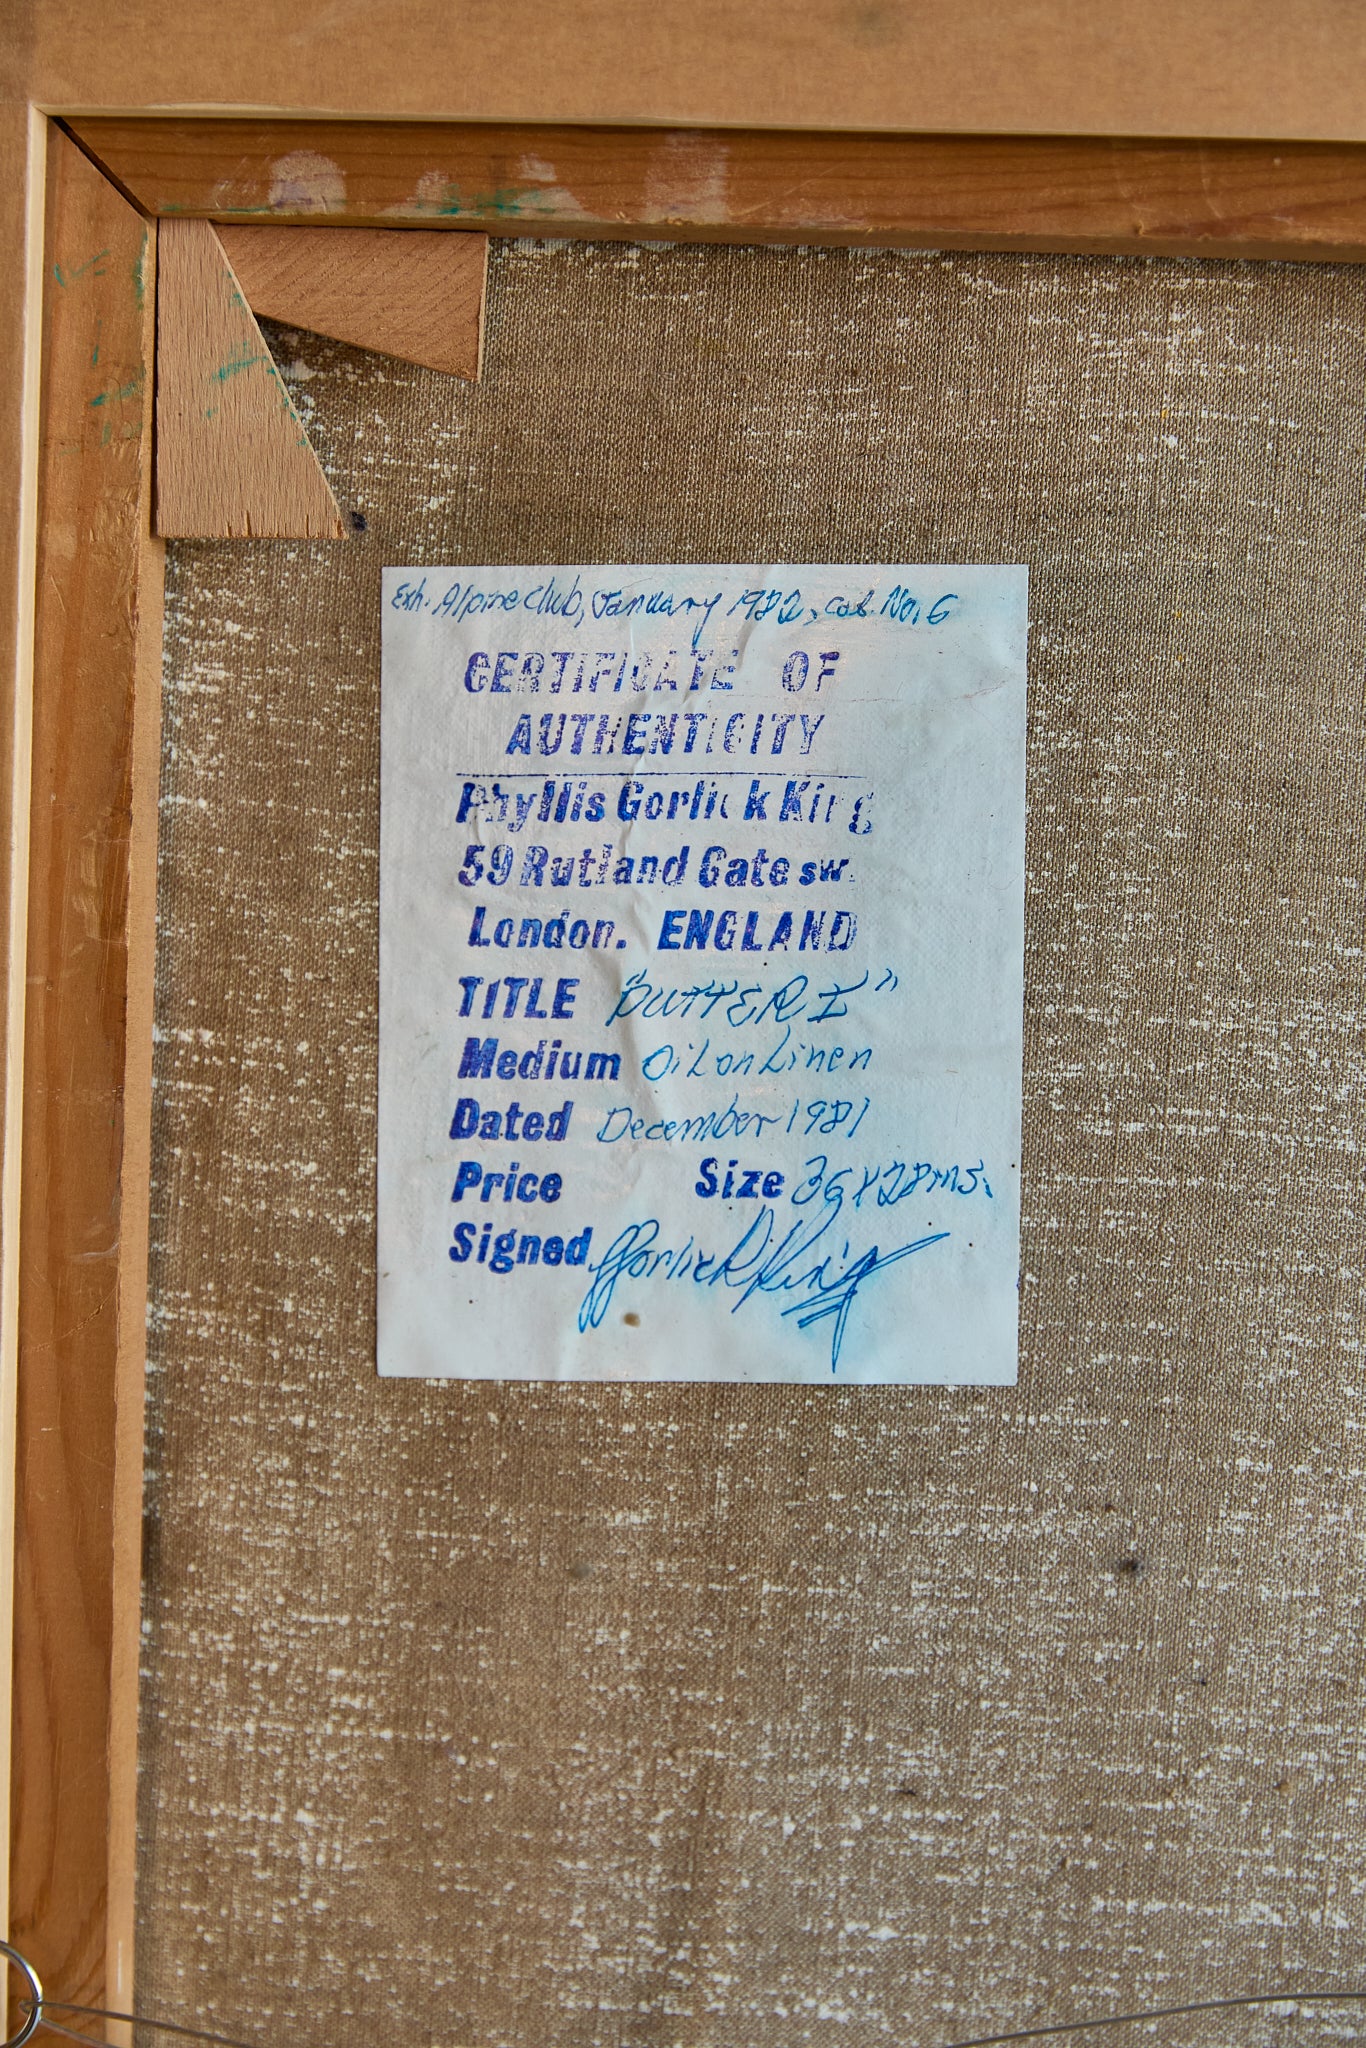 Exh. Alpine Club, January 1982, cat. No. 6
CERTIFICATE OF
AUTHENTICITY
Phyllis Gorlick King
59 Rutland Gate sw.
London. ENGLAND
TITLE "BUTTER I"
Medium Oil on Linen
Dated December 1981
Price Size 36 x 28 ins.
Signed PGorlick King